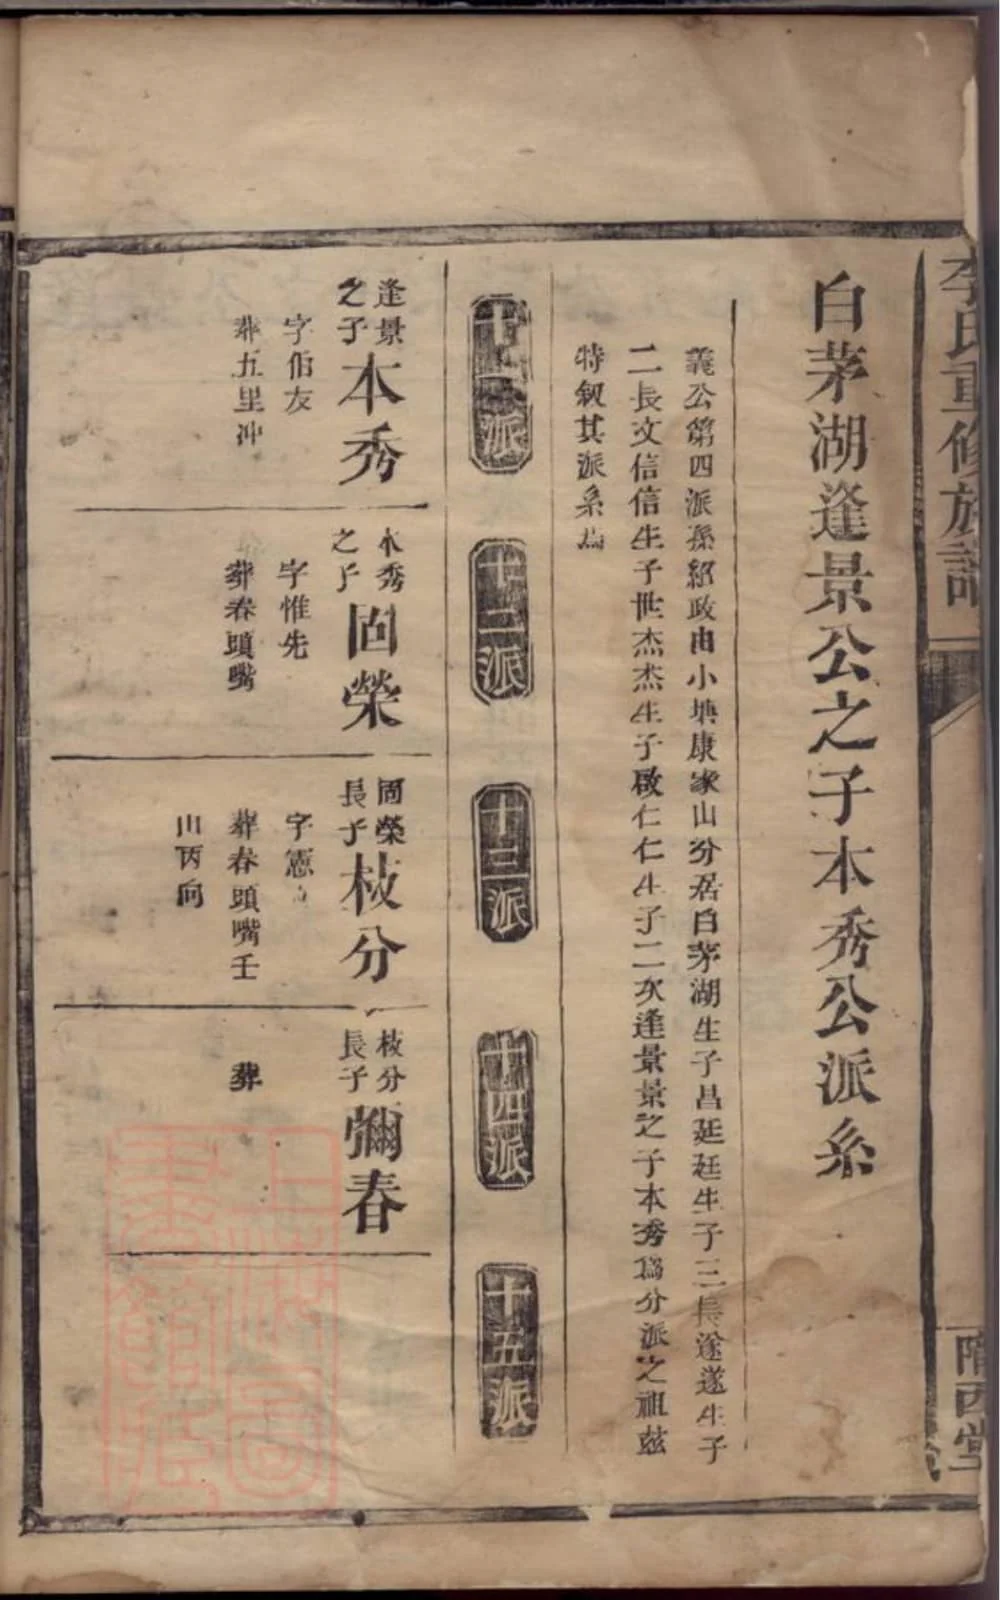 李氏重修族譜
隴西堂
白茅湖逢景公之子本秀公派系
義公第四派孫紹政由小塘康家山分居白茅湖生子昌廷廷生子三長遂遂生子
二長文信信生子世杰杰生子啟仁仁生子二次逢景景之子本秀為分派之祖茲
特敘其派系為
十一派
十二派
十三派
十四派
十五派
逢景
之子
本秀
字伯友
葬五里冲
本秀
之子
固榮
字惟先
葬春頭嘴
固榮
長子
枝分
字憲
葬春頭嘴壬
山丙向
枝分
長子
彌春
葬
上海圖
書館藏